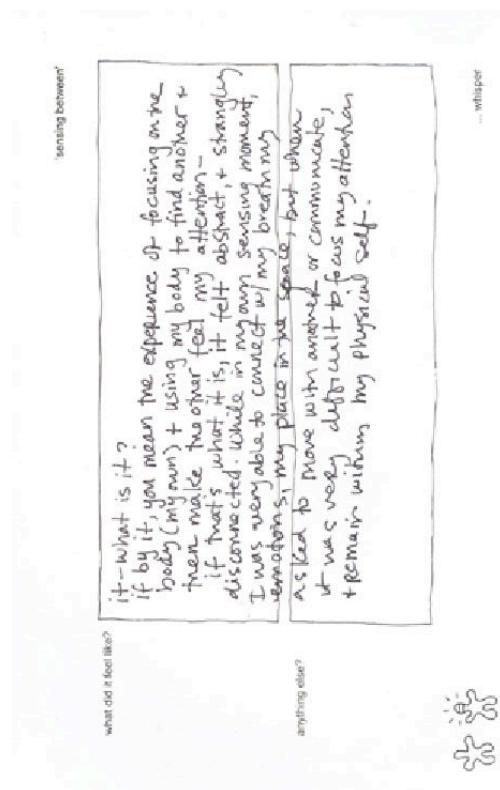 'sensing between'
what did it feel like?
it - what is it?
if by it, you mean the experience of focusing on the
body (my own) + using my body to find another +
then make the other feel my attention -
if that's what it is, it felt abstract, + strangely
disconnected. While in my own sensing moment,
I was very able to connect w/ my breath my
emotions, my place in the space, but when
anything else?
asked to move with another or communicate,
it was very difficult to focus my attention
+ remain within my physical self.
... whisper